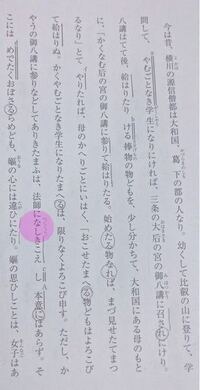 今は昔、横川の源信僧都は大和国、葛下の郡の人なり。幼くして比叡の山に登りて、学
問して、やむごとなき学生になりにければ、三条の大后の宮の御八講に召されにけり。
八講はてて後、給はりたりける捧物の物どもを、少し分かちて、大和国にある母のもと
に、「かくなむ后の宮の御八講に参りて給はりたる。始めたる物なれば、まづ見せたてまつ
るなり」とてやりたれば、母のかへりごとにいはく、「おこせたまへる物どもはよろこび
て給はりぬ。かくやむごとなき学生になりたまへるは、限りなくよろこび申す。ただし、か
やうの御八講に参りなどしてありきたまふは、法師になしきこえし本意にはあらず。そ
こにはめでたくおぼさるらめども、嫗の心には違ひにたり。嫗の思ひしことは、女子はあ